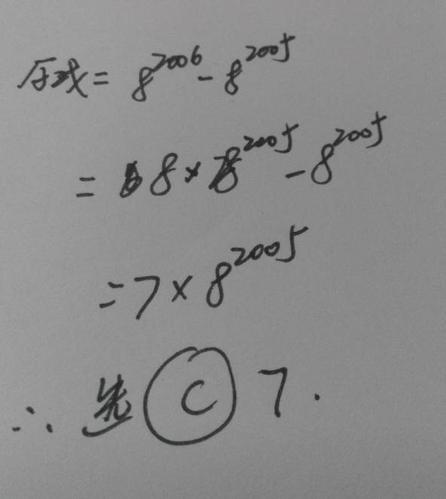 原式 = 8^2006 - 8^2005
= 8 × 8^2005 - 8^2005
= 7 × 8^2005
∴ 选 C 7.